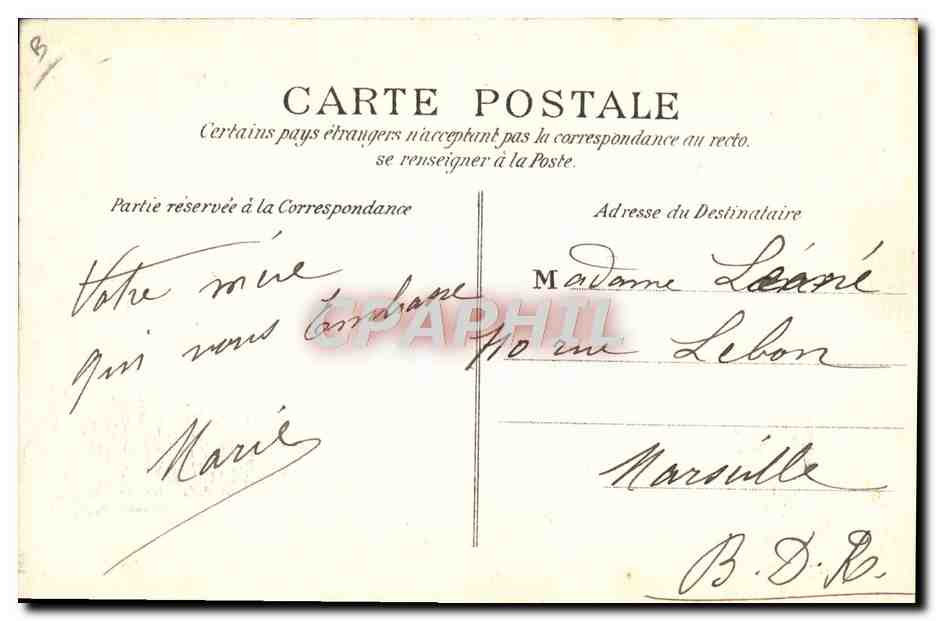 B
CARTE POSTALE
Certains pays étrangers n'acceptant pas la correspondance au recto.
se renseigner à la Poste.
Partie réservée à la Correspondance
Votre mère
qui vous Embrasse
Marie
CPAPHIL
Adresse du Destinataire
Madame
rue Lebon
Marseille
B. D. R.